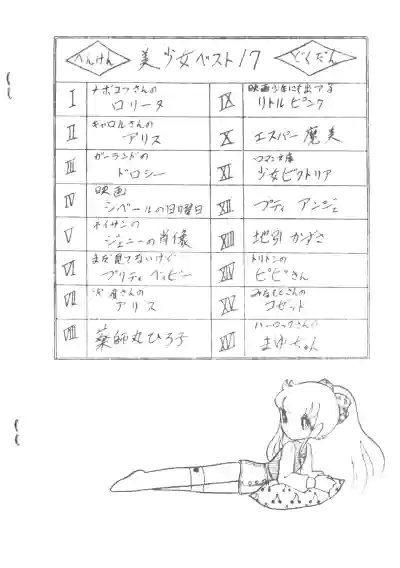 へんけん 美少女ベスト17 どくだん
I ナボコフさんの
ロリータ
II キャロルさんの
アリス
III ガーランドの
ドロシー
IV 映画
シベールの日曜日
V ネイサンの
ジェニーの肖像
VI まだ見てないけど
プリティ・ベィビー
VII 沢渡さんの
アリス
VIII 薬師丸ひろ子
IX
リトルピンク
X エスパー魔美
XI ロマン文庫
少女ビクトリア
XII プティ アンジェ
XIII 地引 かずさ
XIV トリトンの
ピピさん
XV みなもとさんの
コゼット
XVI ハーロックさんの
まゆちゃん